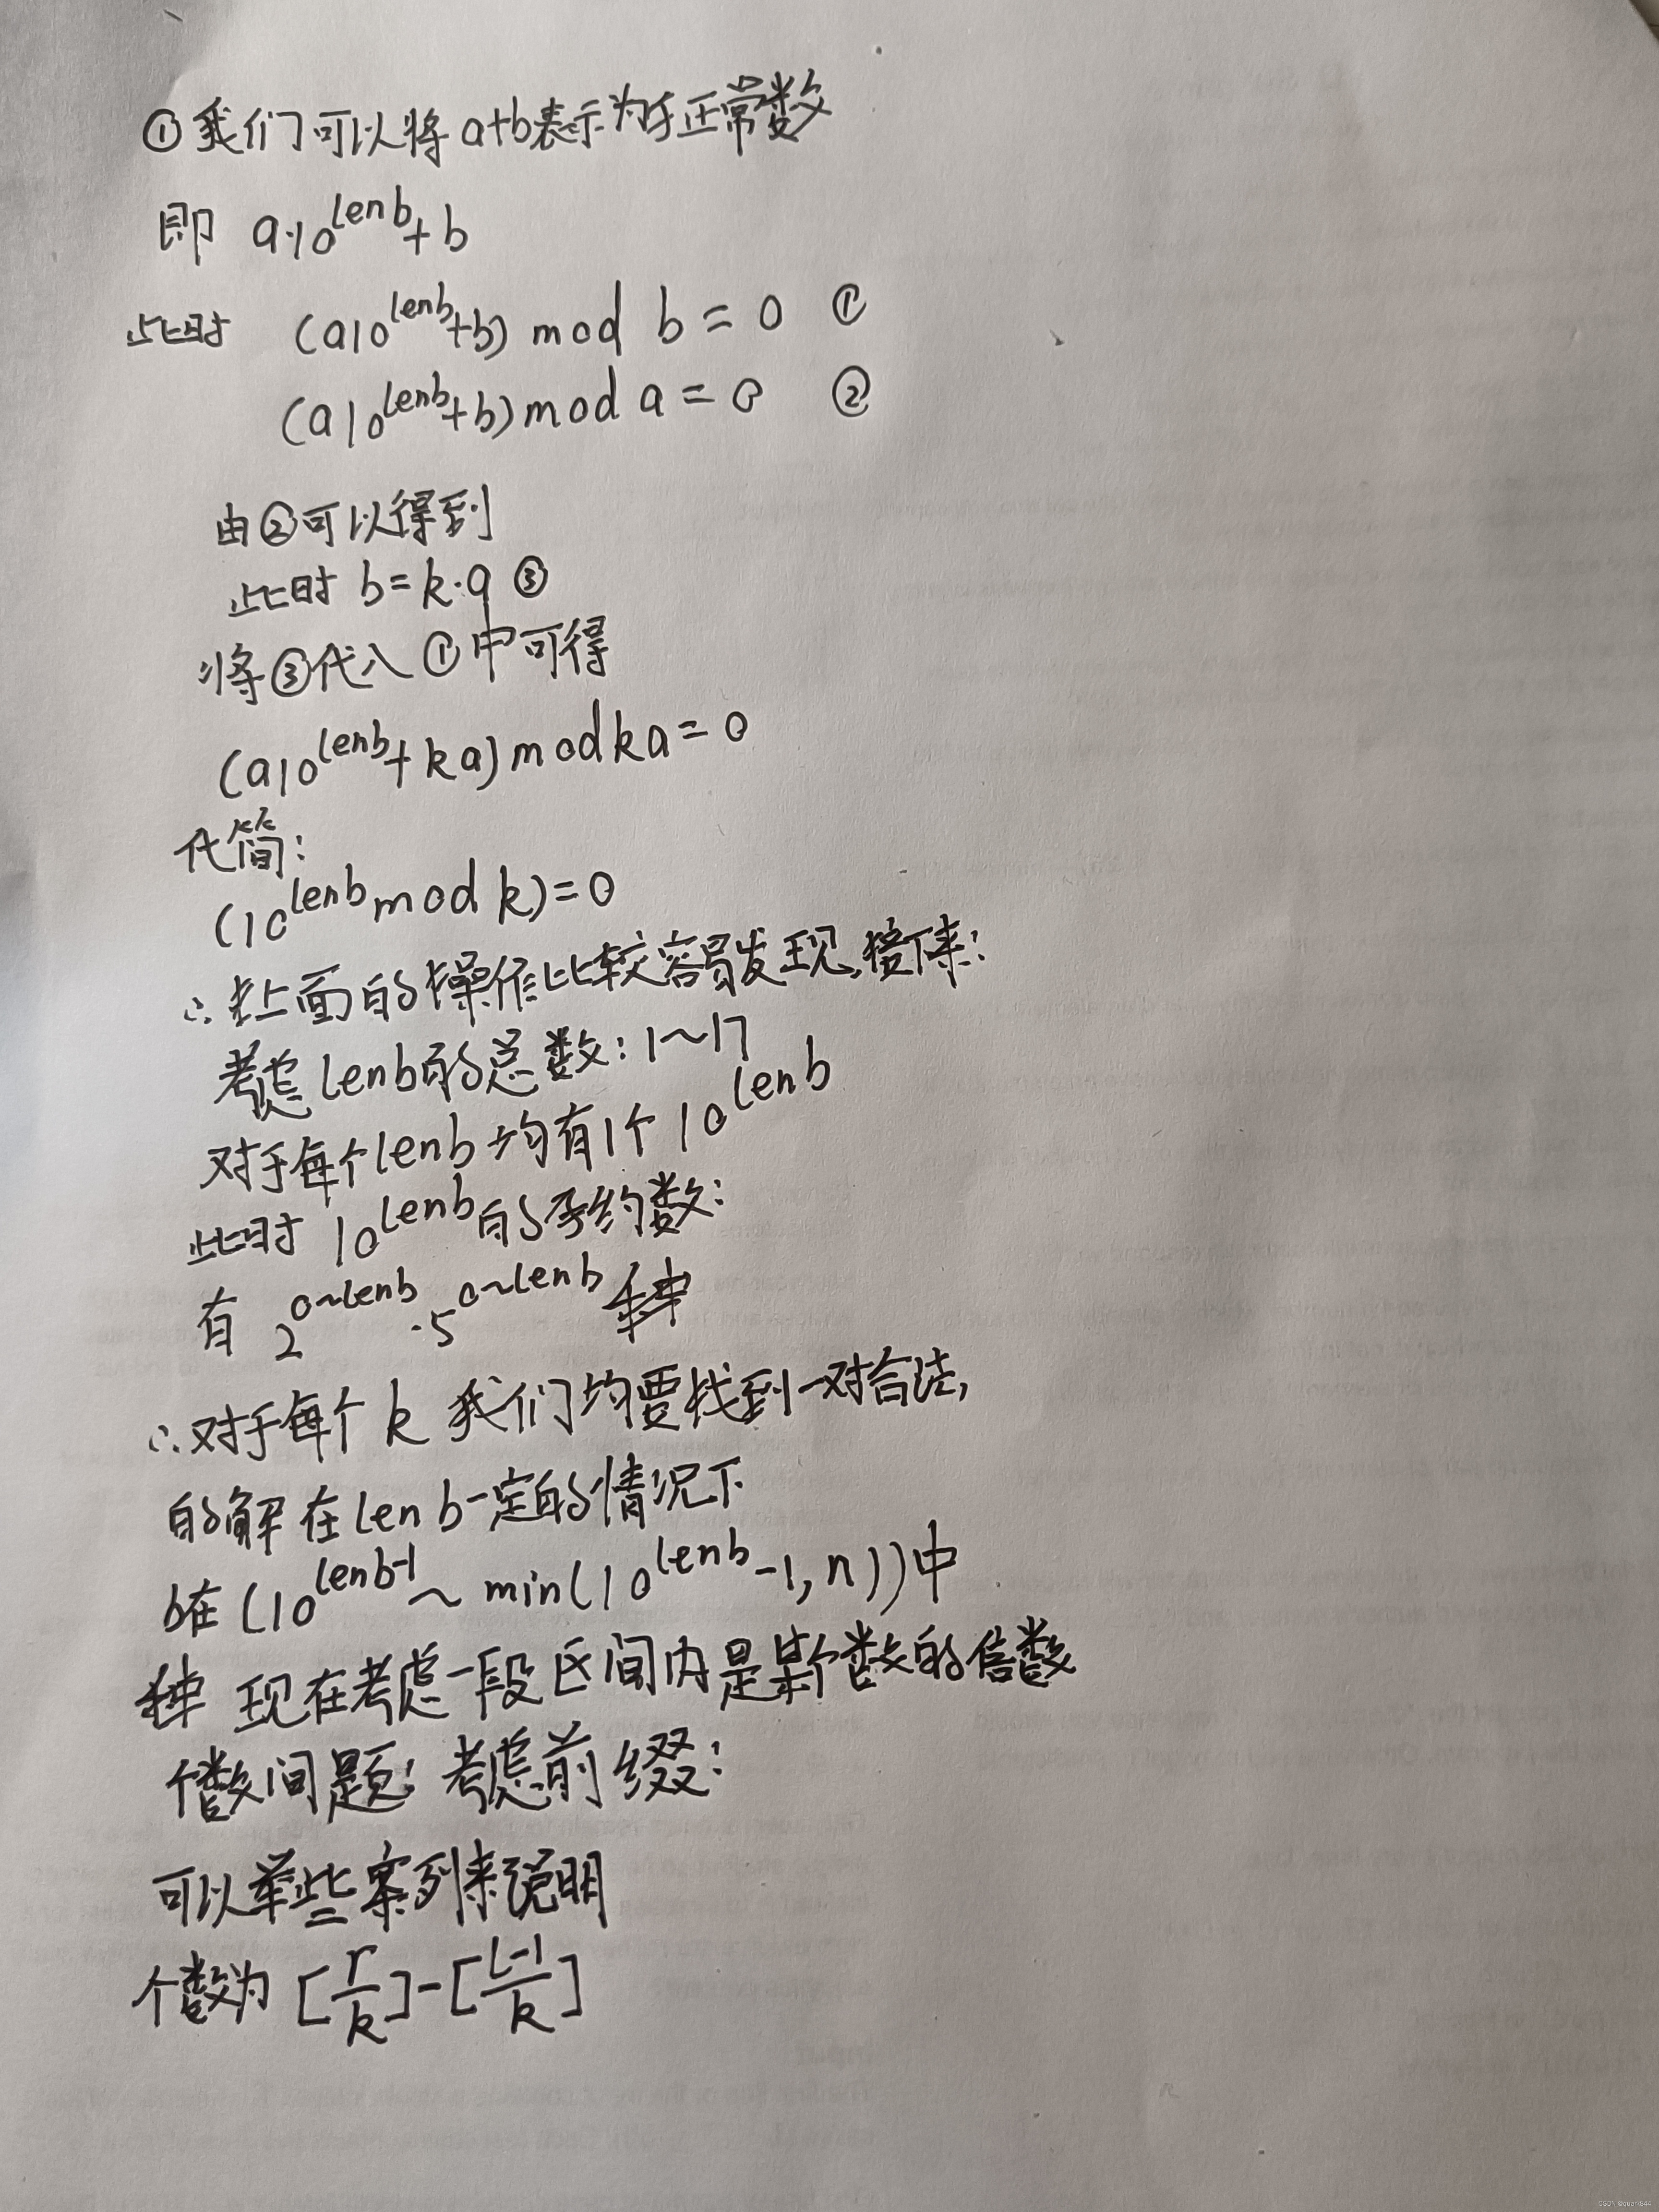 ①我们可以将a+b表示为正常数
即 a·10^lenb+b
此时 (a10^lenb+b) mod b=0 ①
(a10^lenb+b) mod a=0 ②
由②可以得到
此时 b=k·a ③
将③代入①中可得
(a10^lenb+ka) mod ka=0
代简:
(10^lenb mod k)=0
∴上面的操作比较容易发现,接下来:
考虑lenb的总数:1~17
对于每个lenb均有1个10^lenb
此时10^lenb的约数:
有 2^0~lenb·5^0~lenb种
∴对于每个k我们均要找到一对合法,
的解在lenb一定的情况下
b在(10^lenb-1~min(10^lenb-1,n))中
现在考虑一段区间内是某个数的倍数
个数问题:考虑前缀:
可以举些案列来说明
个数为[r/k]-[l-1/k]
CSDN